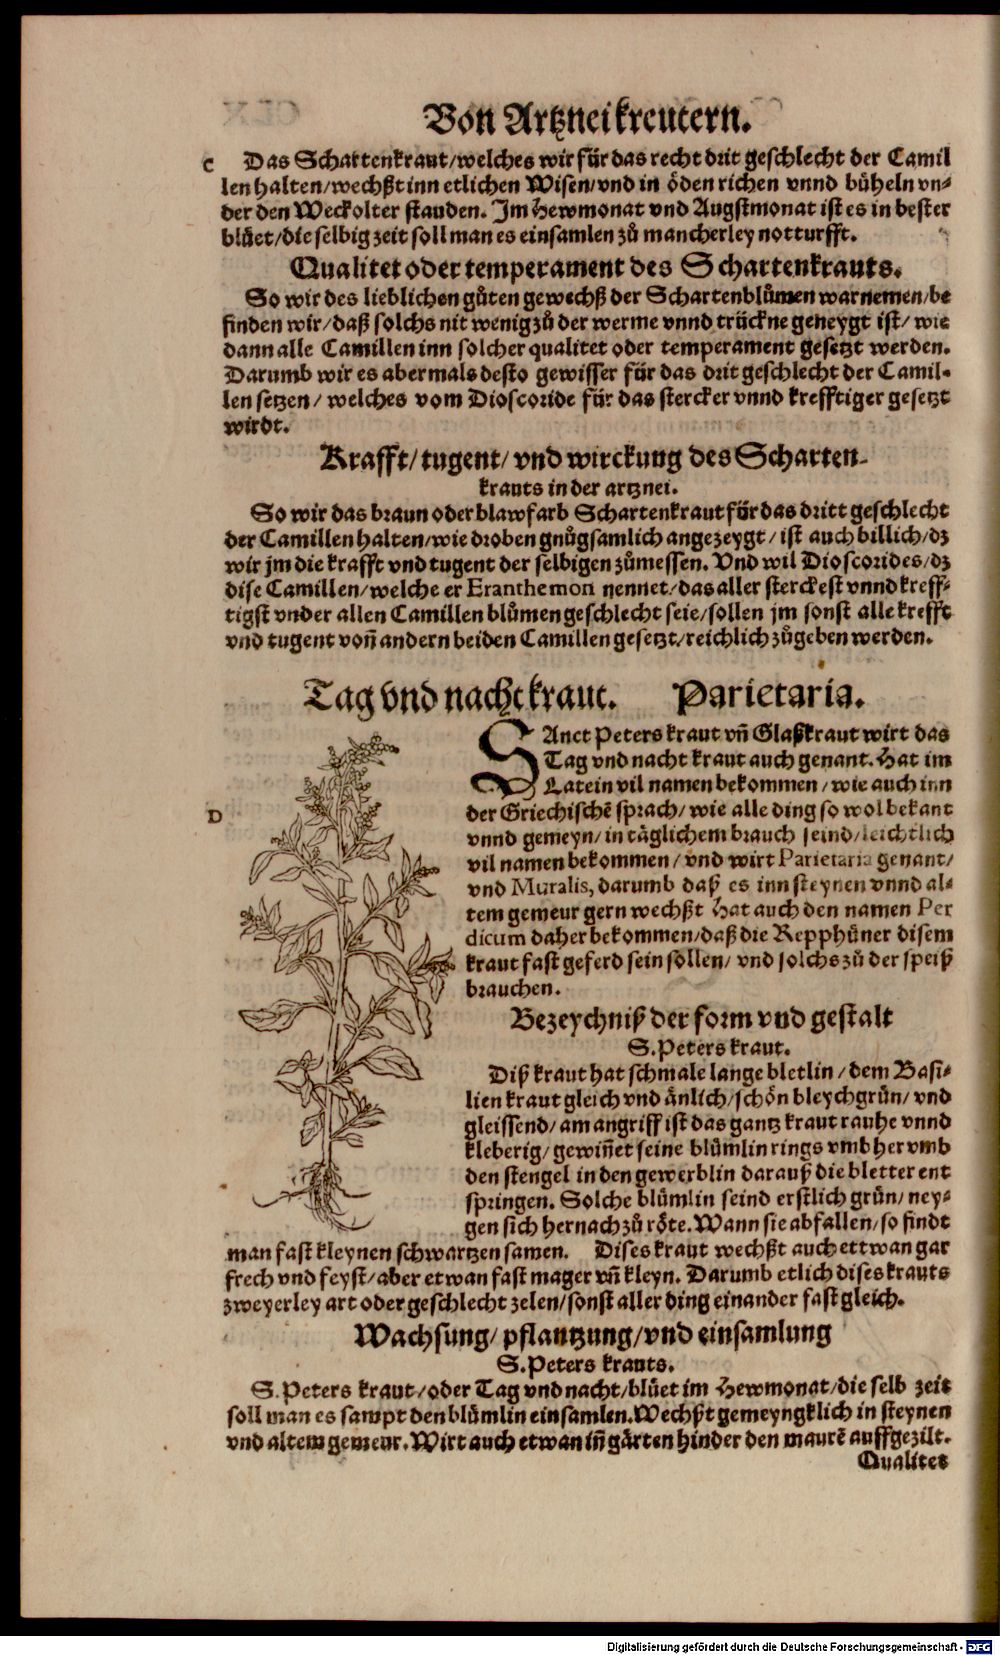 Von Artzneikreutern.
C Das Schartenkraut/welches wir für das recht drit geschlecht der Camil
len halten/wechßt inn etlichen Wisen/vnd in öden richen vnnd büheln vn-
der den Weckolter stauden. Im Hewmonat vnd Augstmonat ist es in bester
blüet/die selbig zeit soll man es einsamlen zů mancherley notturfft.
Qualitet oder temperament des Schartenkrauts.
So wir des lieblichen gůten gewechß der Schartenblůmen warnemen/be
finden wir/daß solchs nit wenig zů der werme vnnd trückne geneygt ist/ wie
dann alle Camillen inn solcher qualitet oder temperament gesetzt werden.
Darumb wir es abermals desto gewisser für das drit geschlecht der Camil-
len setzen/ welches vom Dioscoride für das stercker vnnd krefftiger gesetzt
wirdt.
Krafft/ tugent/ vnd wirckung des Scharten-
krauts in der artznei.
So wir das braun oder blawfarb Schartenkraut für das dritt geschlecht
der Camillen halten/wie droben gnůgsamlich angezeygt/ ist auch billich/dz
wir jm die krafft vnd tugent der selbigen zůmessen. Vnd wil Dioscorides/dz
dise Camillen/welche er Eranthemon nennet/das aller sterckest vnnd kreff-
tigst vnder allen Camillen blůmen geschlecht seie/sollen jm sonst alle krefft
vnd tugent von̄ andern beiden Camillen gesetzt/reichlich zůgeben werden.
Tag vnd nacht kraut. Parietaria.
SAnct Peters kraut vn̄ Glaßkraut wirt das
Tag vnd nacht kraut auch genant. Hat im
Latein vil namen bekommen/ wie auch inn
D der Griechischē sprach/ wie alle ding so wol bekant
vnnd gemeyn/ in täglichem brauch seind/leichtlich
vil namen bekommen/ vnd wirt Parietaria genant/
vnd Muralis, darumb daß es inn steynen vnnd al-
tem gemeur gern wechßt Hat auch den namen Per
dicum daher bekommen/daß die Repphüner disem
kraut fast geferd sein sollen/ vnd solchs zů der speiß
brauchen.
Bezeychniß der form vnd gestalt
S. Peters kraut.
Diß kraut hat schmale lange bletlin/dem Basi-
lien kraut gleich vnd änlich/schön bleychgrün/ vnd
gleissend/ am angriff ist das gantz kraut rauhe vnnd
kleberig/ gewin̄et seine blümlin rings vmb her vmb
den stengel in den gewerblin darauß die bletter ent
springen. Solche blümlin seind erstlich grün/ ney-
gen sich hernach zů röte. Wann sie abfallen/so findt
man fast kleynen schwartzen samen. Dises kraut wechßt auch ettwan gar
frech vnd feyst/aber etwan fast mager vn̄ kleyn. Darumb etlich dises krauts
zweyerley art oder geschlecht zelen/sonst aller ding einander fast gleich.
Wachsung/ pflantzung/vnd einsamlung
S. Peters krauts.
S. Peters kraut/oder Tag vnd nacht/blüet im Hewmonat/die selb zeit
soll man es sampt den blümlin einsamlen. Wechßt gemeyngklich in steynen
vnd altem gemeur. Wirt auch etwan in̄ gärten hinder den maurē auffgezilt.
Qualitet
Digitalisierung gefördert durch die Deutsche Forschungsgemeinschaft - DFG